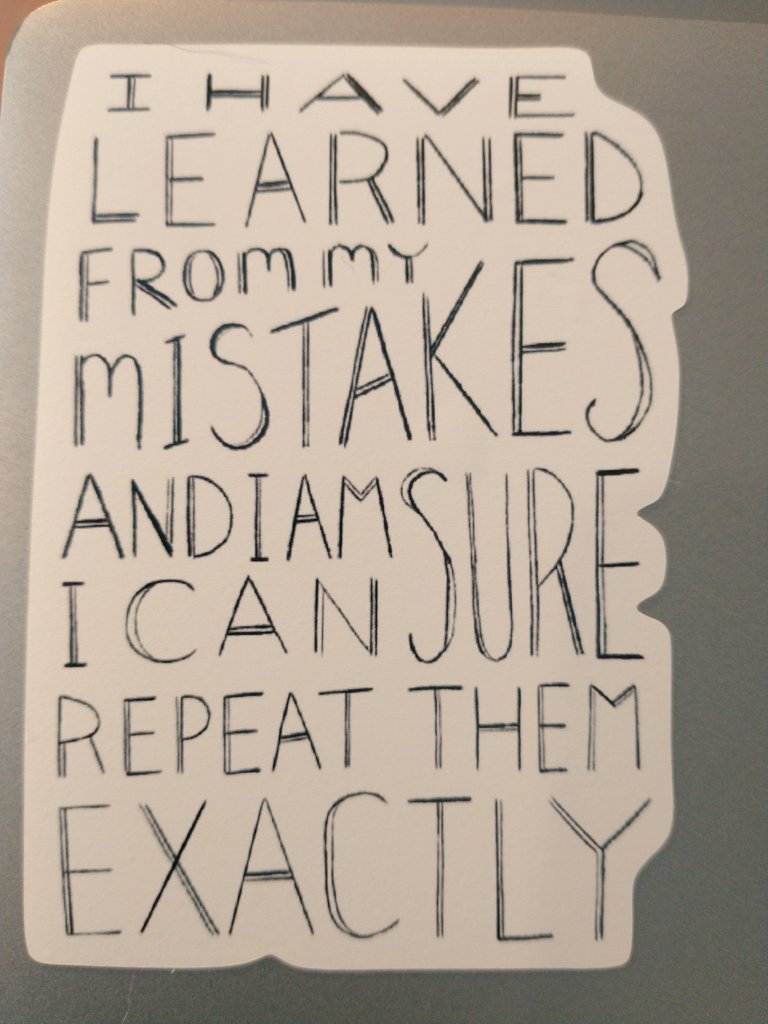 I HAVE
LEARNED
FROM MY
MISTAKES
AND I AM SURE
I CAN
REPEAT THEM
EXACTLY